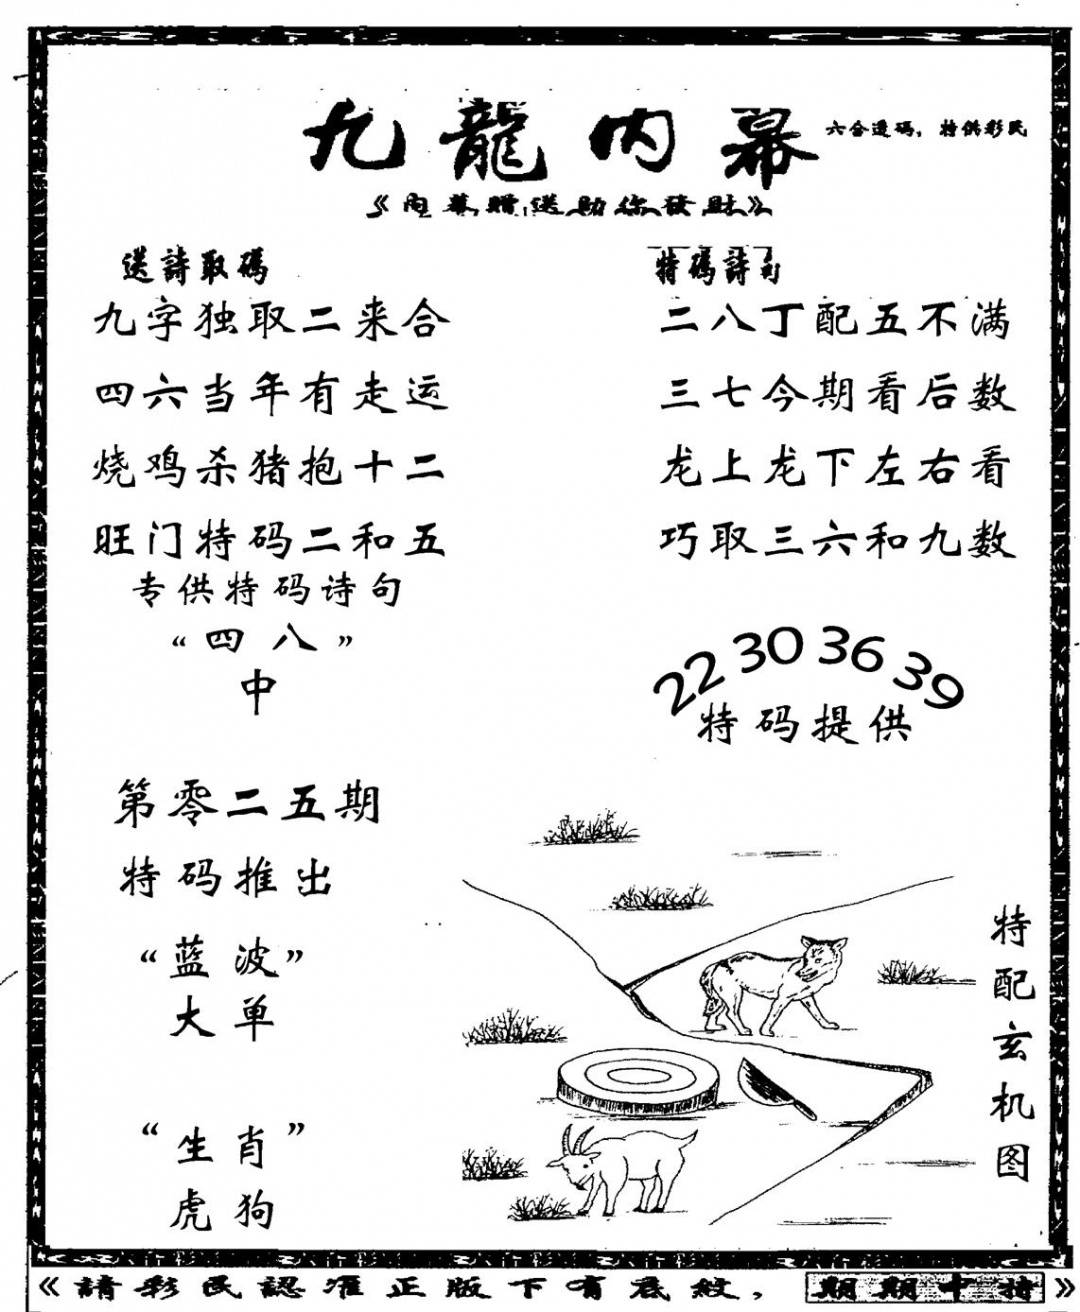 九龍内幕
六合透码，特供彩民
《内幕赠送助你發財》
送詩取碼
九字独取二来合
四六当年有走运
烧鸡杀猪抱十二
旺门特码二和五
专供特码诗句
“四八”
中
第零二五期
特码推出
“蓝波”
大单
“生肖”
虎狗
特碼詩句
二八丁配五不满
三七今期看后数
龙上龙下左右看
巧取三六和九数
22 30 36 39
特码提供
特配玄机图
《請彩民認准正版下有底紋，期期中特》